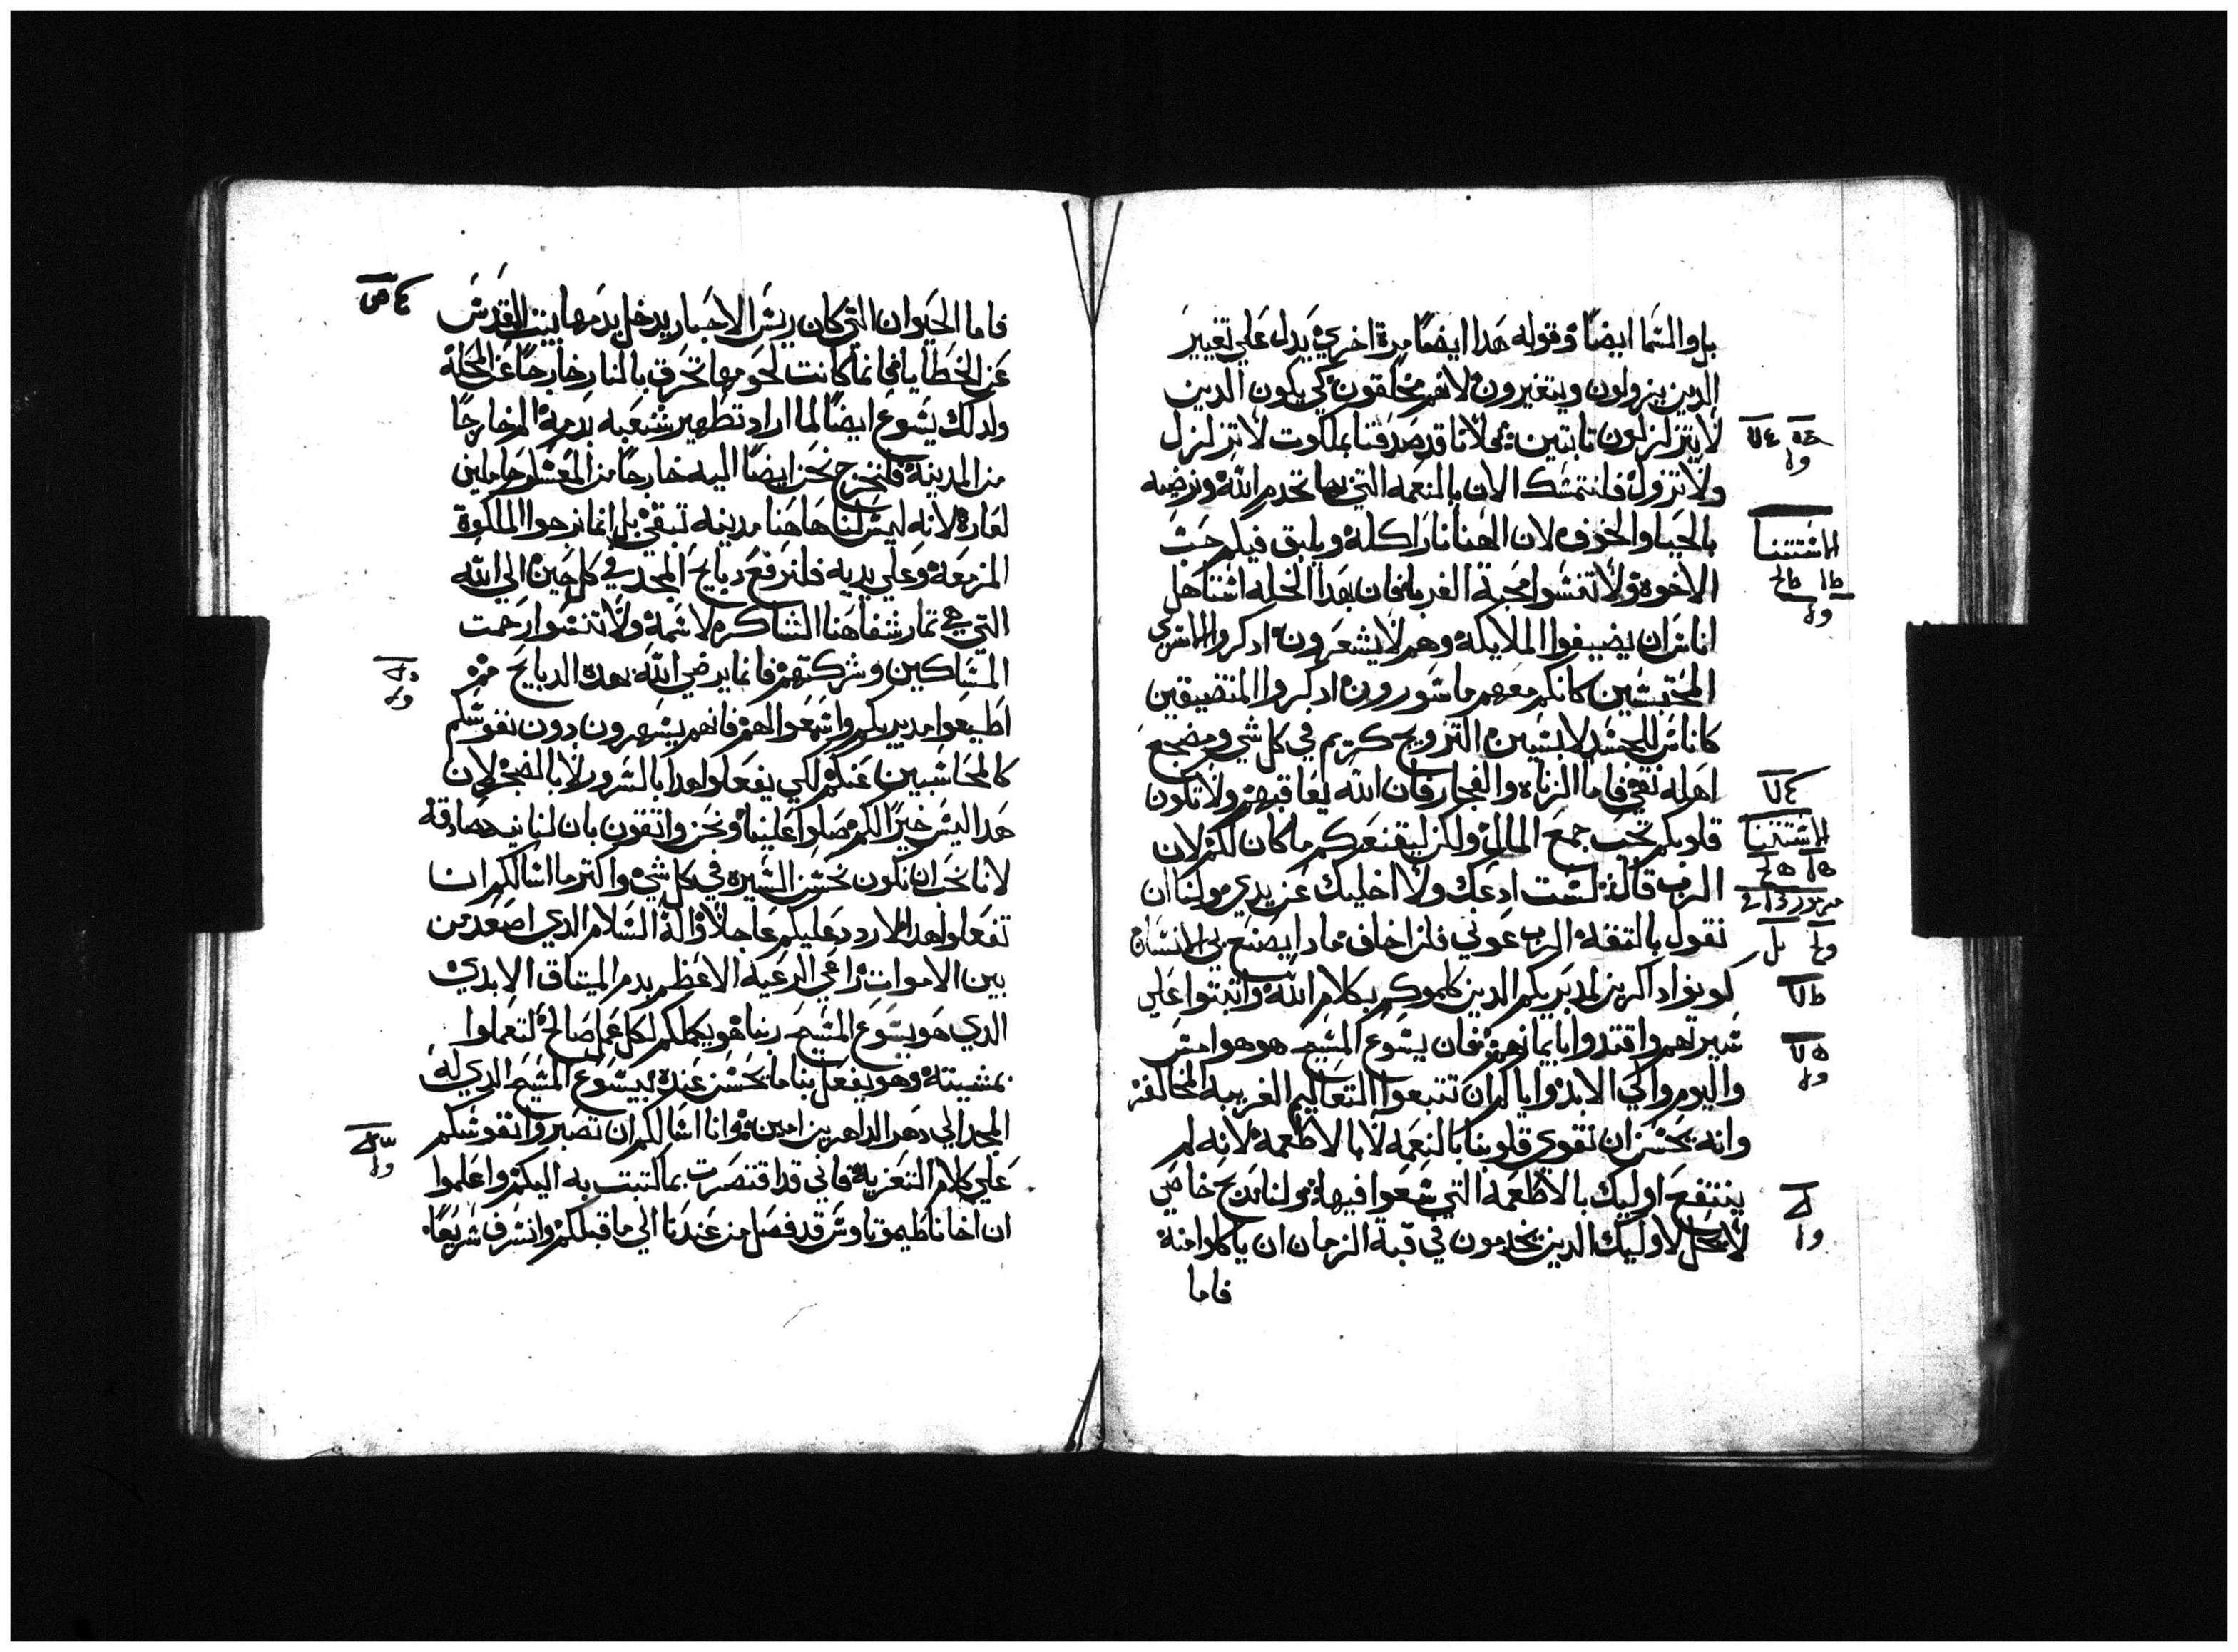 بل والسما ايضًا وقوله هدا ايضًا مرة اخري يدل علي تغيير
الدين يزولون ويتغيرون لانهم مخلقون كي يكون الدين
لا يتزلزلون تابتين فمحلانا قد صدقنا بملكوت لا تزلزل
ولا تزول فلنتمسك الان بالنعمه التي بها نخدم الله ونرضيه
بالحيا والخوف لان الهنا نار اكلة ويليق فيكم حب
الاخوة ولا تنسوا محبة الغربا فان بهدا الخله استاهل
اناس ان يضيفوا الملايكة وهم لا يشعرون ادكروا الاسري
المحتبسين كانكم معهم ماسورون ادكروا المتضيقين
كاناس للجسد لابسين التزويج كريم في كل شي ومضجع
اهله نقي فاما الزناه والفجار فان الله يعاقبهم ولا تكون
قلوبكم تحب جمع المال ولكن ليقنعكم ما كان لكم لان
الرب قال لست ادعك ولا اخليك عن يدي ولنا ان
نقول بالتقة الرب عوني فلن اخاف مادا يصنع بي الانسان
كونوا داكرين لمدبريكم الدين كلموكم بكلام الله واتبتوا علي
سيرتهم واقتدوا بايمانهم فان يسوع المسيح هو هو امس
واليوم والي الابد واياكم ان تتبعوا التعاليم الغريبه المخالفة
وانه يحسن ان نقوي قلوبنا بالنعمه لا بالاطعمة لانه لم
ينتفع اوليك بالاطعمة التي سعوا فيها ولنا مدبح خاص
لا يحل لاوليك الدين يخدمون في قبة الزمان ان ياكلوا منه
فاما
فاما الحيوان التي كان ريس الاحبار يدخل بدمها بيت القدس
عن الخطايا فانما كانت لحومها تحرق بالنار خارجًا عن المحلة
ولدلك يسوع ايضًا لما اراد تطهير شعبه بدمه الم خارجًا
من المدينة فلنخرج نحن ايضًا اليه خارجًا من المعسكر حاملين
لعاره لانه ليس لنا هاهنا مدينه تبقي بل انما نرجوا الملكوة
المزمعة وعلي يديه فلنرفع دبايح المجد في كل حين الي الله
التي هي تمار شفاهنا الشاكره لاسمه ولا تنسوا رحمت
المساكين وشركتهم فانما يرضي الله بهده الدبايح
اطيعوا مدبريكم واسمعوا لهم فانهم يسهرون دون نفوسكم
كالمحاسبين عنكم لكي يفعلوا هدا بالسرور لا بالضجر لان
هدا ليس خيرًا لكم صلوا علينا ونحن واتقون بان لنا نيه صادقه
لانا نحب ان نكون نحسن السيره في كل شي واكتر ما اسالكم ان
تفعلوا هدا لاردد عليكم عاجلا واله السلام الدي اصعد من
بين الاموات راعي الرعيه الاعظم بدم الميتاق الابدي
الدي هو يسوع المسيح ربنا هو يكملكم لكل عمل صالح لتعملوا
بمشيئته وهو يفعل بنا ما يحسن عنده بيسوع المسيح الدي له
المجد الي دهر الداهرين امين وانا اسالكم ان تصبروا نفوسكم
علي كلام التعزية فاني قد اقتصرت بما كتبت به اليكم واعلموا
ان اخانا طيموتاوس قد فصل من عندنا الي ما قبلكم وانسرف سريعًا